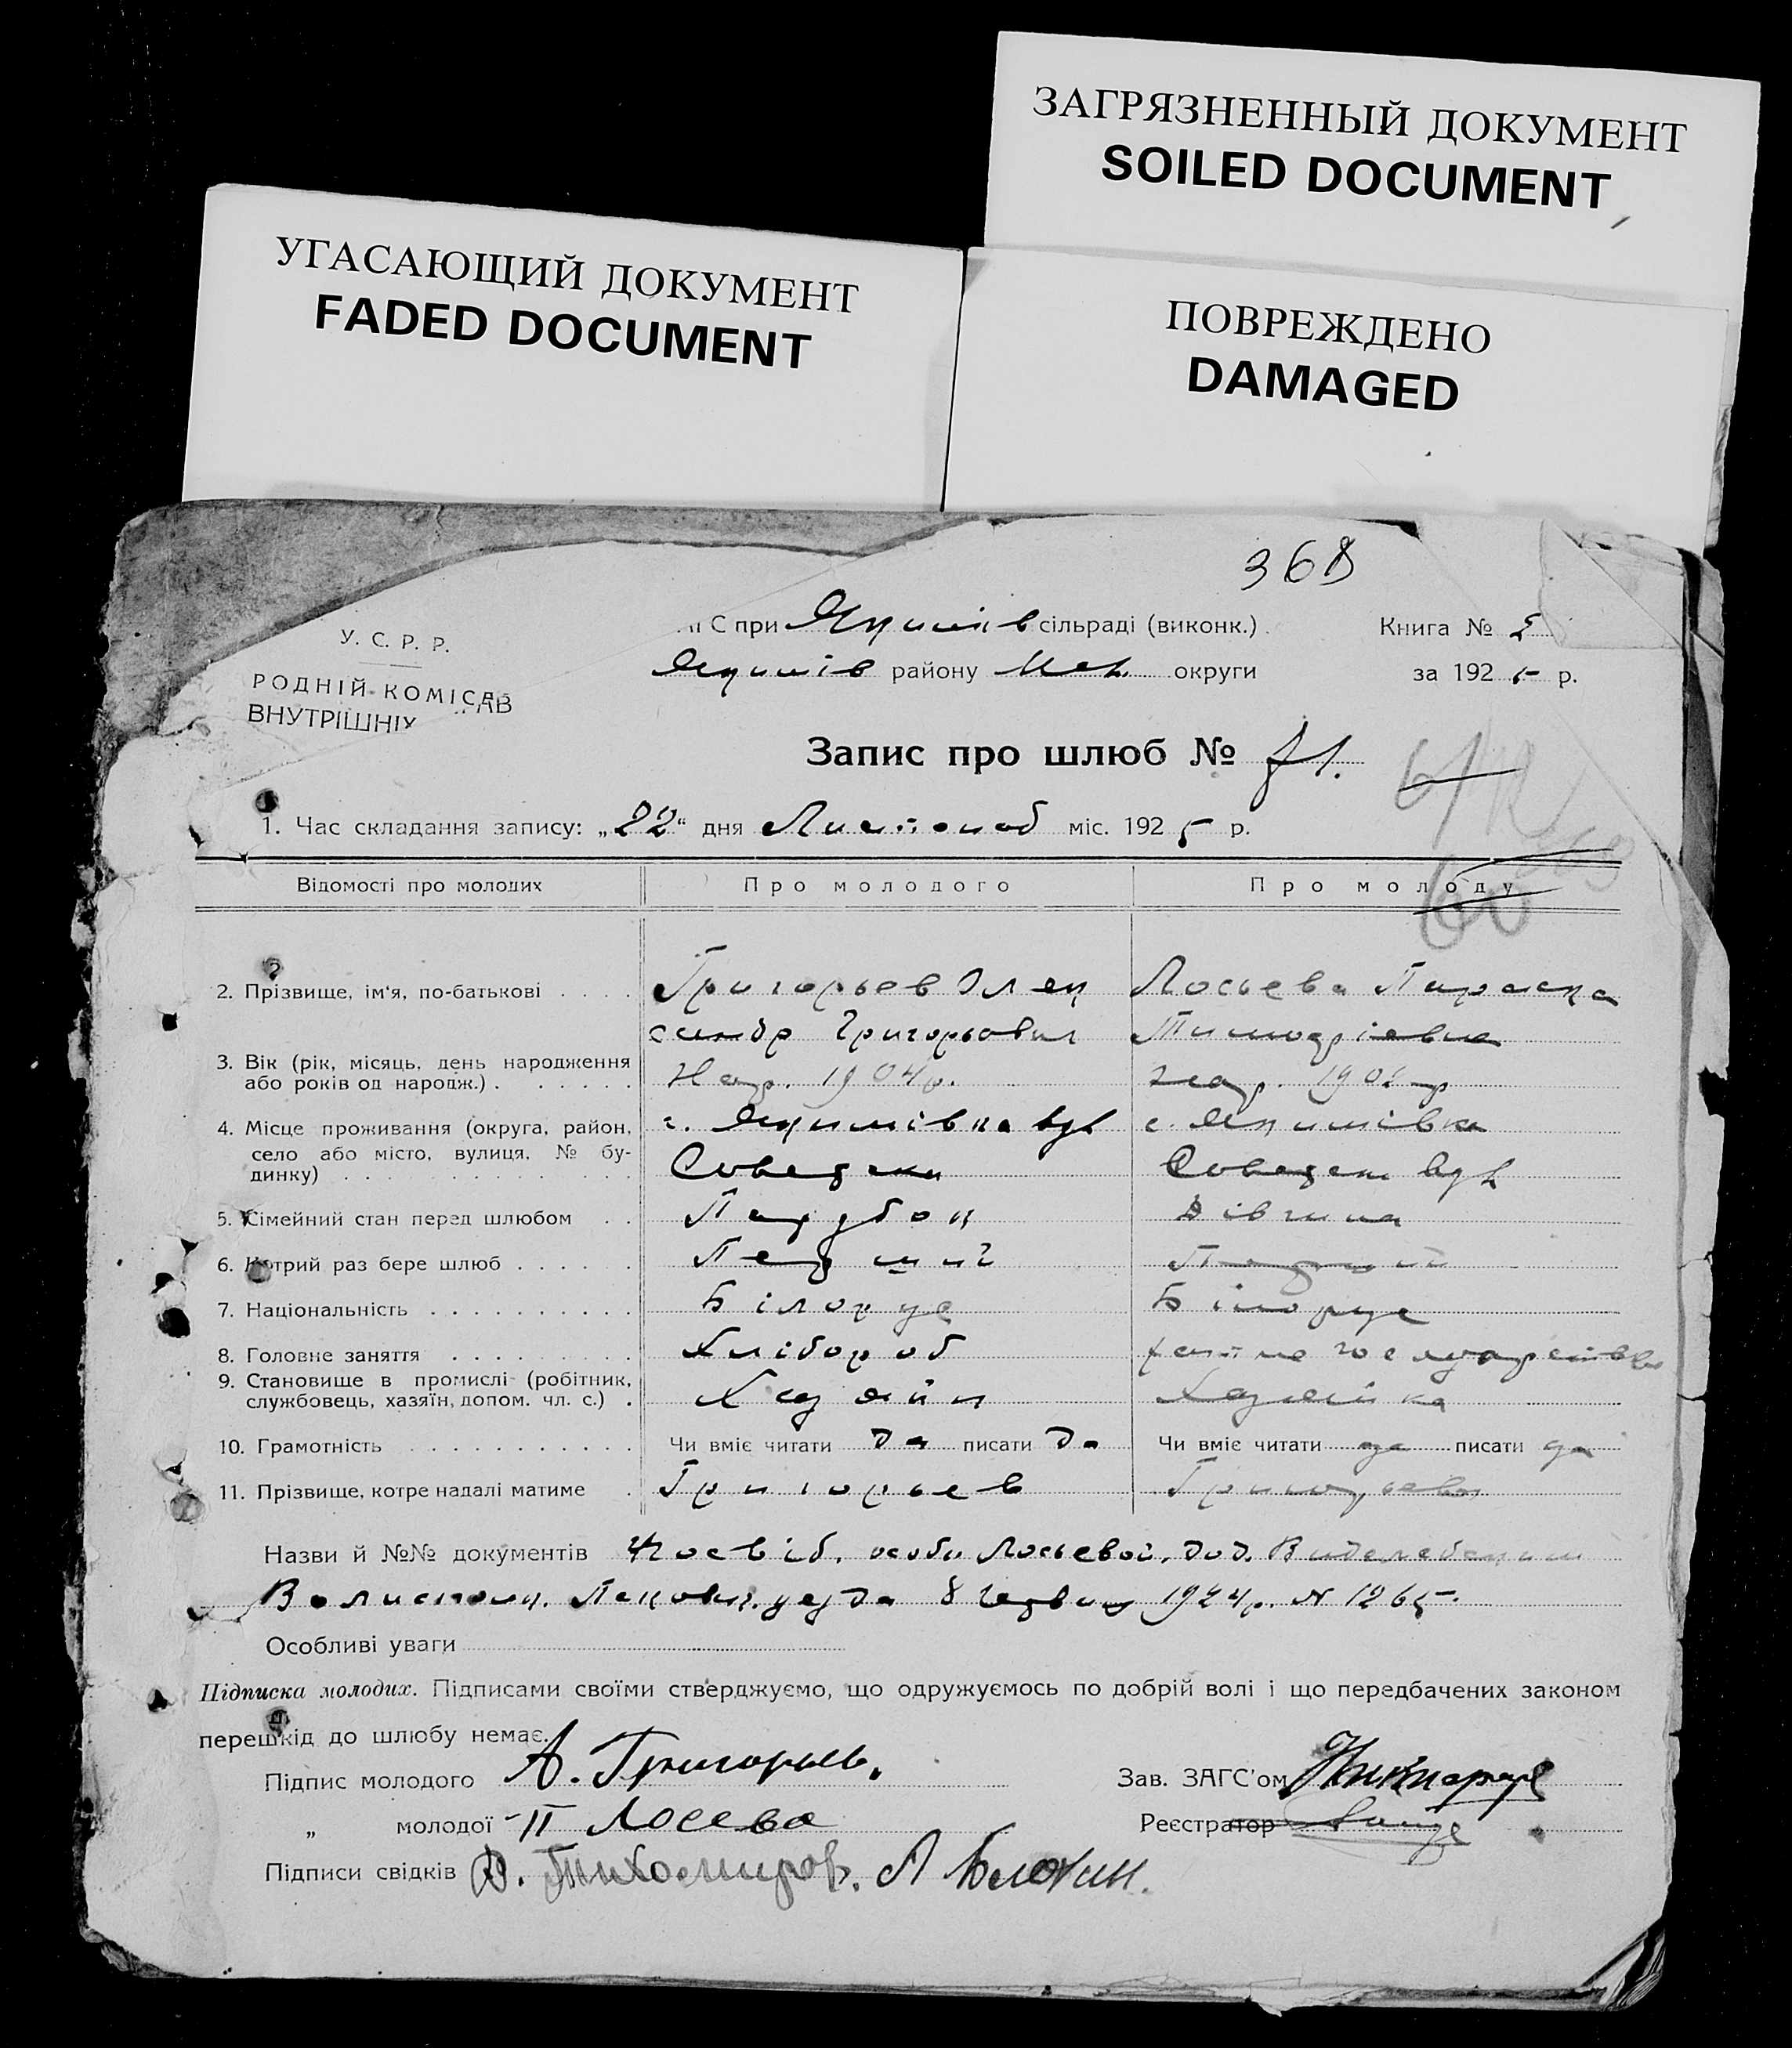 ЗАГРЯЗНЕННЫЙ ДОКУМЕНТ
SOILED DOCUMENT
УГАСАЮЩИЙ ДОКУМЕНТ
FADED DOCUMENT
ПОВРЕЖДЕНО
DAMAGED
368
У. С. Р. Р.
РОДНІЙ КОМІСАР
ВНУТРІШНІХ
С при Якимів сільраді (виконк.)
Книга №
Якимів району Мел. округи
за 1925 р.
Запис про шлюб № 71.
1. Час складання запису: „22“ дня Листопад міс. 1925 р.
Відомості про молодих
Про молодого
Про молоду
2. Прізвище, ім'я, по-батькові
Григорьев Олек
сандр Григорьович
Лосьева Параска
3. Вік (рік, місяць, день народження
або років од народж.)
Нар. 1904 р.
нар.
4. Місце проживання (округа, район,
село або місто, вулиця, № бу-
динку)
с. Якимівка вул
с. Якимівка
5. Сімейний стан перед шлюбом
Парубок
Дівчина
6. Котрий раз бере шлюб
Перший
Перший
7. Національність
Білорус
Білорус
8. Головне заняття
Хлібороб
9. Становище в промислі (робітник,
службовець, хазяїн, допом. чл. с.)
Хазяїн
Хазяйка
10. Грамотність
Чи вміє читати да писати да
Чи вміє читати да писати да
11. Прізвище, котре надалі матиме
Григорьев
Григорьева
Назви й №№ документів Посвід. особи Лосьевой, вид.
8 Червня 1924 р. N 1265.
Особливі уваги
Підписка молодих. Підписами своїми стверджуємо, що одружуємось по добрій волі і що передбачених законом
перешкід до шлюбу немає.
Підпис молодого А. Григорьев.
Зав. ЗАГС'ом
„ молодої П Лосева
Реєстратор
Підписи свідків Тихомиров. А Блохин.